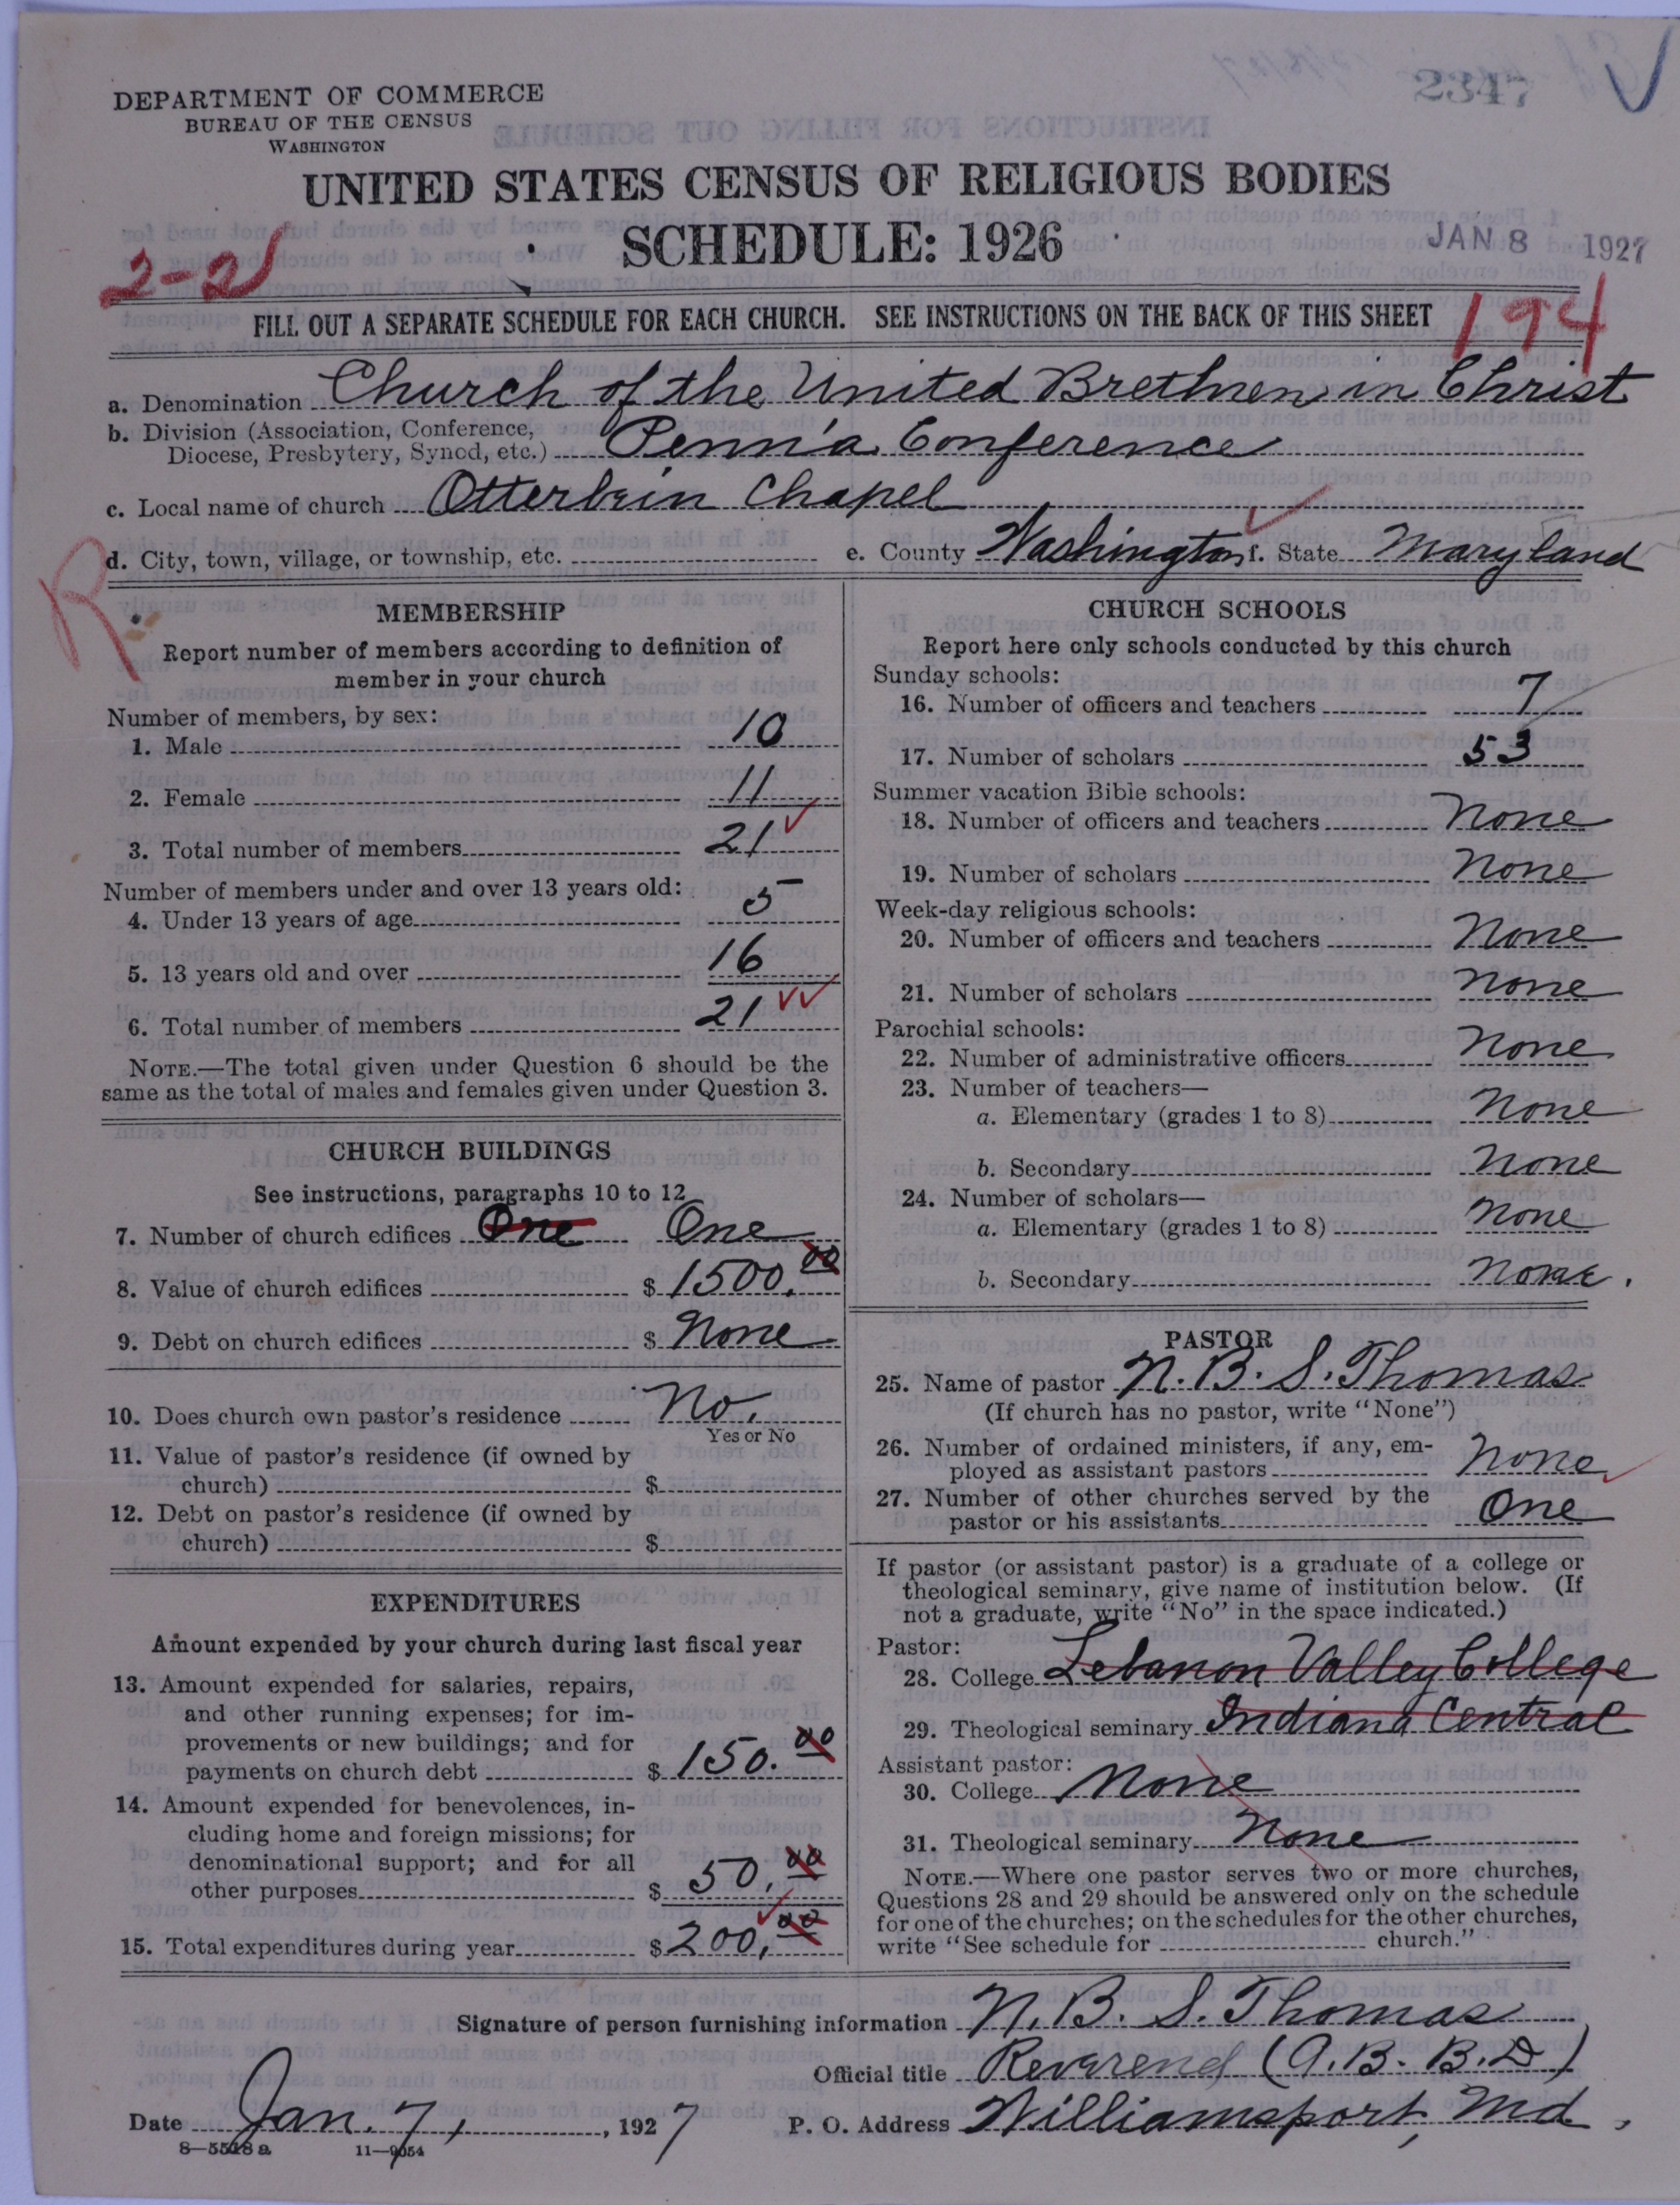 2347
DEPARTMENT OF COMMERCE
BUREAU OF THE CENSUS
WASHINGTON
UNITED STATES CENSUS OF RELIGIOUS BODIES
SCHEDULE: 1926
JAN 8 1927
2-21
FILL OUT A SEPARATE SCHEDULE FOR EACH CHURCH. SEE INSTRUCTIONS ON THE BACK OF THIS SHEET
194
a. Denomination Church of the United Brethren in Christ
b. Division (Association, Conference, Diocese, Presbytery, Synod, etc.) Penn'a Conference
c. Local name of church Otterbein Chapel
d. City, town, village, or township, etc. e. County Washington f. State Maryland
R
MEMBERSHIP
Report number of members according to definition of
member in your church
Number of members, by sex:
1. Male 10
2. Female 11
3. Total number of members 21
Number of members under and over 13 years old:
4. Under 13 years of age 5
5. 13 years old and over 16
6. Total number of members 21
NOTE.—The total given under Question 6 should be the
same as the total of males and females given under Question 3.
CHURCH BUILDINGS
See instructions, paragraphs 10 to 12
7. Number of church edifices One One
8. Value of church edifices $ 1500.00
9. Debt on church edifices $ None
10. Does church own pastor's residence No.
Yes or No
11. Value of pastor's residence (if owned by
church) $
12. Debt on pastor's residence (if owned by
church) $
EXPENDITURES
Amount expended by your church during last fiscal year
13. Amount expended for salaries, repairs,
and other running expenses; for im-
provements or new buildings; and for
payments on church debt $ 150.00
14. Amount expended for benevolences, in-
cluding home and foreign missions; for
denominational support; and for all
other purposes $ 50.00
15. Total expenditures during year $ 200.00
CHURCH SCHOOLS
Report here only schools conducted by this church
Sunday schools:
16. Number of officers and teachers 7
17. Number of scholars 53
Summer vacation Bible schools:
18. Number of officers and teachers None
19. Number of scholars None
Week-day religious schools:
20. Number of officers and teachers None
21. Number of scholars None
Parochial schools:
22. Number of administrative officers None
23. Number of teachers—
a. Elementary (grades 1 to 8) None
b. Secondary None
24. Number of scholars—
a. Elementary (grades 1 to 8) None
b. Secondary None.
PASTOR
25. Name of pastor N. B. S. Thomas
(If church has no pastor, write "None")
26. Number of ordained ministers, if any, em-
ployed as assistant pastors None
27. Number of other churches served by the
pastor or his assistants One
If pastor (or assistant pastor) is a graduate of a college or
theological seminary, give name of institution below. (If
not a graduate, write "No" in the space indicated.)
Pastor:
28. College Lebanon Valley College
29. Theological seminary Indiana Central
Assistant pastor:
30. College None
31. Theological seminary None
NOTE.—Where one pastor serves two or more churches,
Questions 28 and 29 should be answered only on the schedule
for one of the churches; on the schedules for the other churches,
write "See schedule for church."
Signature of person furnishing information N. B. S. Thomas
Official title Reverend (A.B. B.D)
Date Jan. 7, 1927 P. O. Address Williamsport, Md.
8—5518 a 11—9054